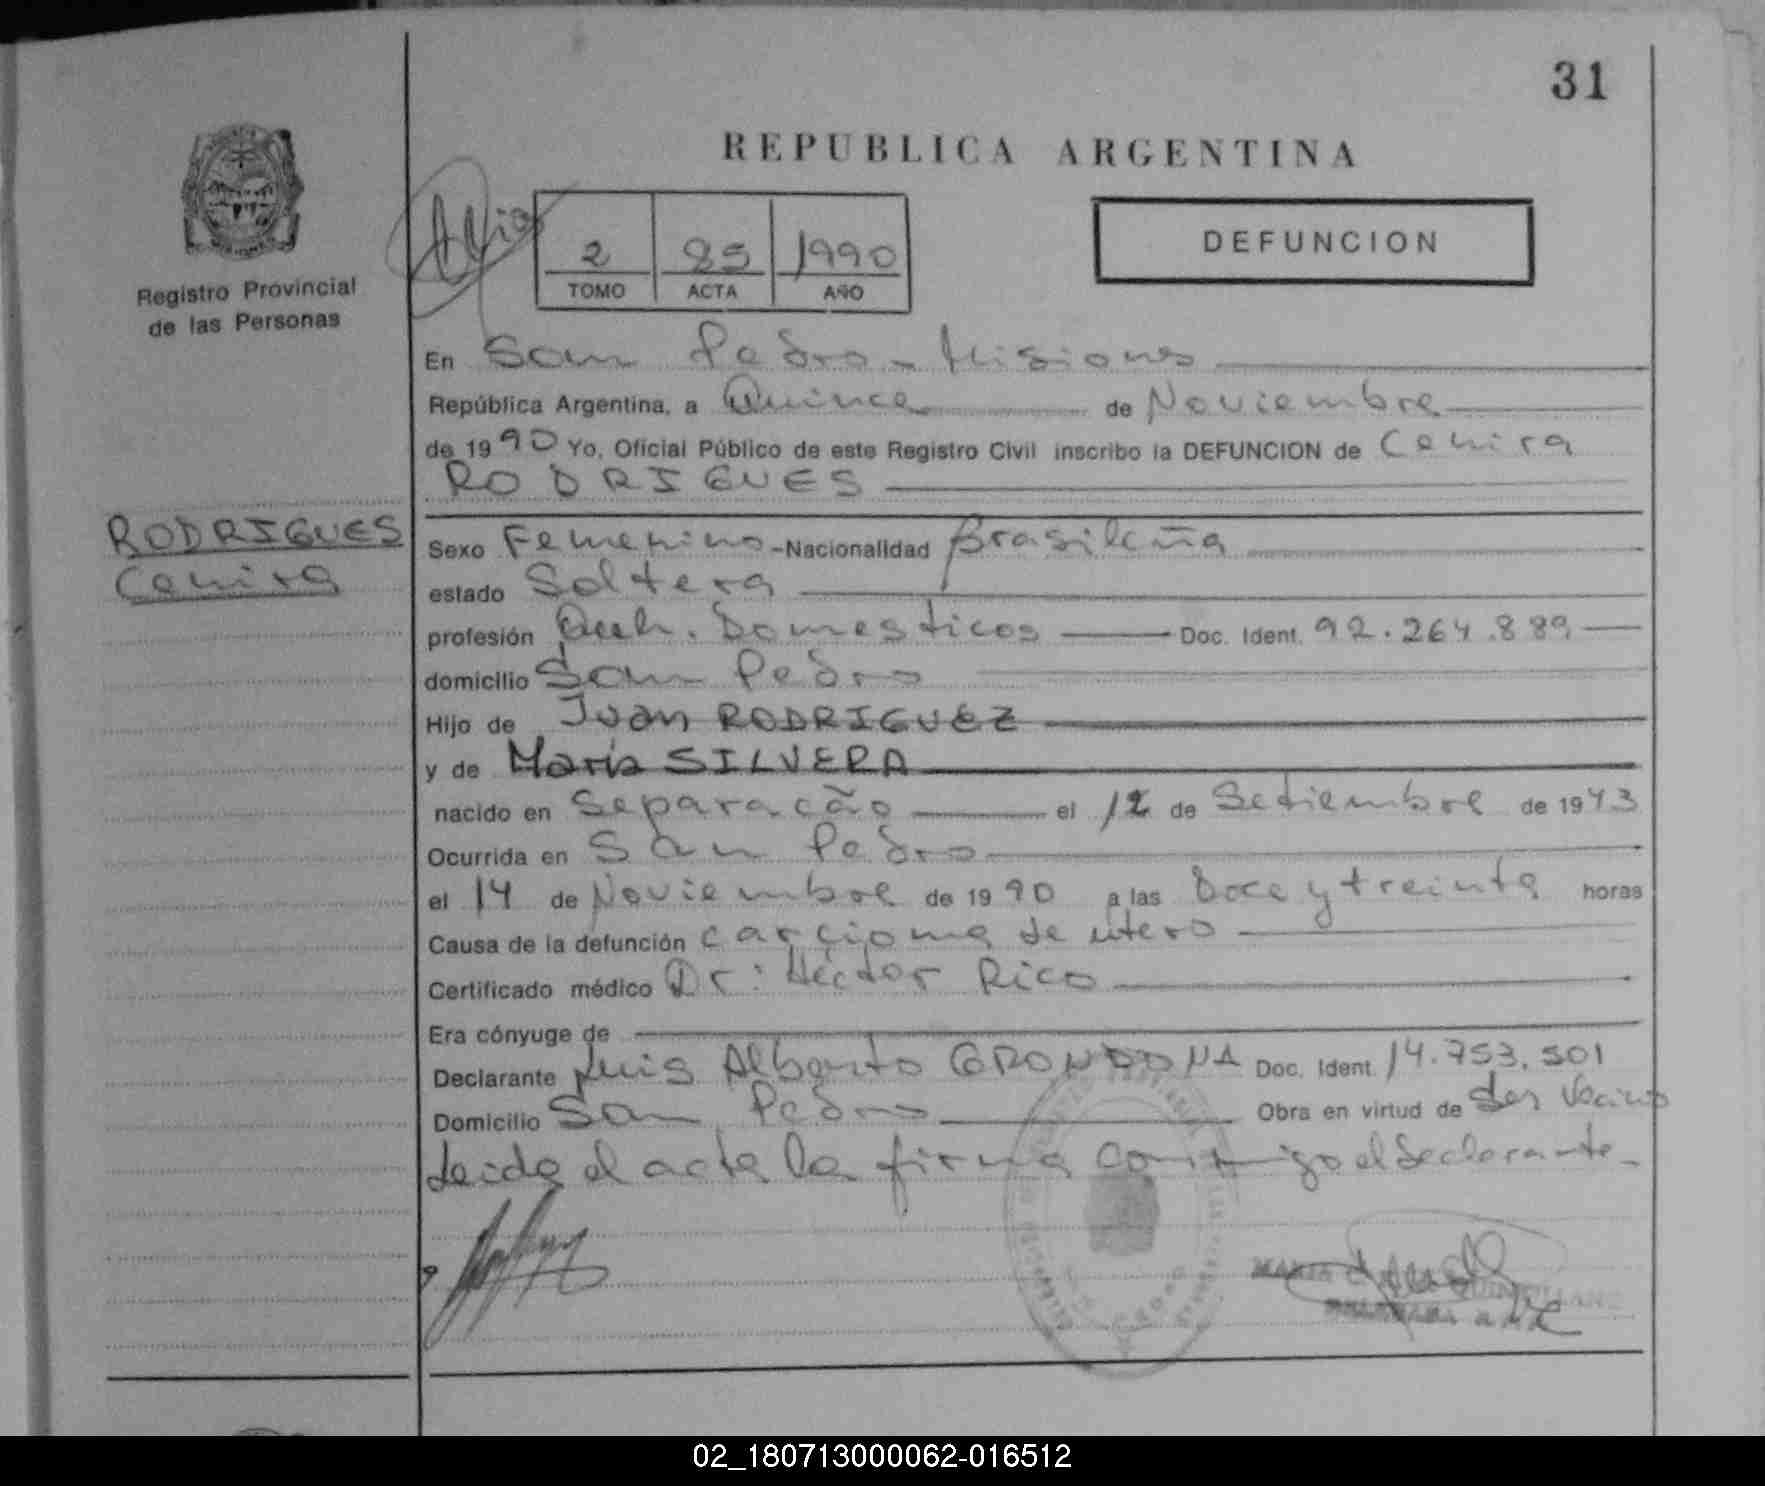 31
REPUBLICA ARGENTINA
DEFUNCION
2 85 1990
TOMO ACTA AÑO
Registro Provincial
de las Personas
En San Pedro - Misiones
República Argentina, a Quince de Noviembre
de 1990 Yo, Oficial Público de este Registro Civil inscribo la DEFUNCION de Cenira
RODRIGUES
RODRIGUES
Cenira
Sexo Femenino - Nacionalidad Brasileña
estado Soltera
profesión Queh. Domesticos Doc. Ident. 92.264.889
domicilio San Pedro
Hijo de Juan RODRIGUEZ
y de María SILVERA
nacido en Separacão el 12 de Setiembre de 1943
Ocurrida en San Pedro
el 14 de Noviembre de 1990 a las Doce y treinta horas
Causa de la defunción carcioma de utero
Certificado médico Dr: Héctor Rico
Era cónyuge de
Declarante Luis Alberto GRONDONA Doc. Ident. 14.753.501
Domicilio San Pedro Obra en virtud de ser vecino
Leida el acta la firma conmigo el declarante -
02_180713000062-016512